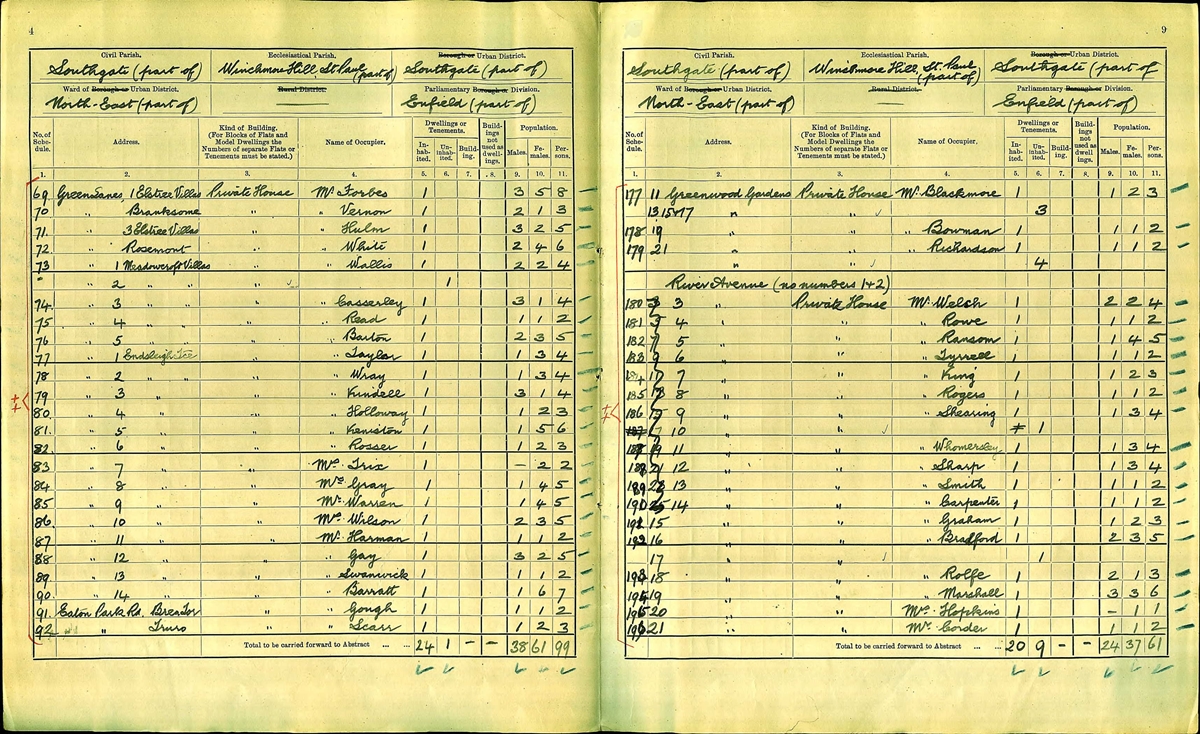 4
Civil Parish. Ecclesiastical Parish. Borough or Urban District.
Southgate (part of) Winchmore Hill, St Paul (part of) Southgate (part of)
Ward of Borough or Urban District. Rural District. Parliamentary Borough or Division.
North-East (part of) — Enfield (part of)
No. of Schedule. Address. Kind of Building. (For Blocks of Flats and Model Dwellings the Numbers of separate Flats or Tenements must be stated.) Name of Occupier. Dwellings or Tenements. Inhabited. Uninhabited. Building. Buildings not used as dwellings. Population. Males. Females. Persons.
1. 2. 3. 4. 5. 6. 7. 8. 9. 10. 11.
69 Green Lanes, 1 Elstree Villas Private House Mr Forbes 1 3 5 8
70 " Branksome " " Vernon 1 2 1 3
71. " 3 Elstree Villas " " Hulm 1 3 2 5
72 " Rosemont " " White 1 2 4 6
73 " 1 Meadowcroft Villas " " Wallis 1 2 2 4
" " 2 " " " 1
74. " 3 " " " Casserley 1 3 1 4
75 " 4 " " " Read 1 1 1 2
76 " 5 " " " Barton 1 2 3 5
77 " 1 Endsleigh Tce " " Taylor 1 1 3 4
78 " 2 " " " Wray 1 1 3 4
79 " 3 " " " Kindell 1 3 1 4
80. " 4 " " " Holloway 1 1 2 3
81. " 5 " " " Keniston 1 1 5 6
82. " 6 " " " Rosser 1 1 2 3
83 " 7 " " Mrs Trix 1 – 2 2
84 " 8 " " Mrs Gray 1 1 4 5
85 " 9 " " Mr Warren 1 1 4 5
86. " 10 " " Mrs Wilson 1 2 3 5
87 " 11 " " Mr Harman 1 1 1 2
88 " 12 " " " Gay 1 3 2 5
89. " 13 " " " Swanwick 1 1 1 2
90. " 14 " " " Barratt 1 1 6 7
91. Eaton Park Rd. Brea Tor " " Gough 1 1 1 2
92 " Truro " " Scarr 1 1 2 3
Total to be carried forward to Abstract ... ... 24 1 – – 38 61 99
9
Civil Parish. Ecclesiastical Parish. Borough or Urban District.
Southgate (part of) Winchmore Hill, St Paul (part of) Southgate (part of
Ward of Borough or Urban District. Rural District. Parliamentary Borough or Division.
North-East (part of) — Enfield (part of)
No. of Schedule. Address. Kind of Building. (For Blocks of Flats and Model Dwellings the Numbers of separate Flats or Tenements must be stated.) Name of Occupier. Dwellings or Tenements. Inhabited. Uninhabited. Building. Buildings not used as dwellings. Population. Males. Females. Persons.
1. 2. 3. 4. 5. 6. 7. 8. 9. 10. 11.
177 11 Greenwood Gardens Private House Mr Blackmore 1 1 2 3
13 15 & 17 " " 3
178 19 " " " Bowman 1 1 1 2
179 21 " " " Richardson 1 1 1 2
" " 4
River Avenue (no numbers 1 & 2)
180 3 Private House Mr Welsh 1 2 2 4
181 4 " " Rowe 1 1 1 2
182 5 " " Ransom 1 1 4 5
183 6 " " Tyrrell 1 1 1 2
184 7 " " King 1 1 2 3
185 8 " " Rogers 1 1 1 2
186 9 " " Shearing 1 1 3 4
187 10 " 1
187 11 " " Whomersley 1 1 3 4
188 12 " " Sharp 1 1 3 4
189 13 " " Smith 1 1 1 2
190 14 " " Carpenter 1 1 1 2
191 15 " " Graham 1 1 2 3
192 16 " " Bradford 1 2 3 5
17 " 1
193 18 " " Rolfe 1 2 1 3
194 19 " " Marshall 1 3 3 6
195 20 " Mrs Hopkins 1 – 1 1
196 21 " Mr Corder 1 1 1 2
Total to be carried forward to Abstract ... ... 20 9 – – 24 37 61